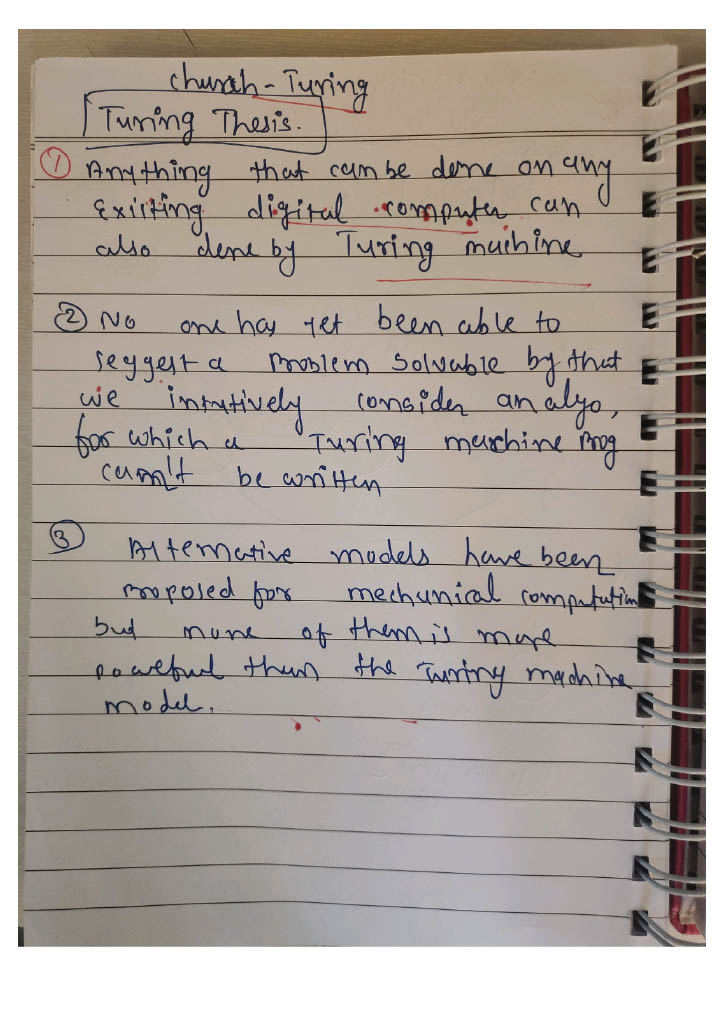 Church - Turing
Turing Thesis.
① Anything that can be done on any
Existing digital computer can
also done by Turing machine
② No one has yet been able to
seggest a Problem Solvable by that
we intutively consider an algo,
for which a Turing machine Prog
cann't be written
③ Alternative models have been
Proposed for mechanical computation
but none of them is more
poweful than the Turing machine
model.